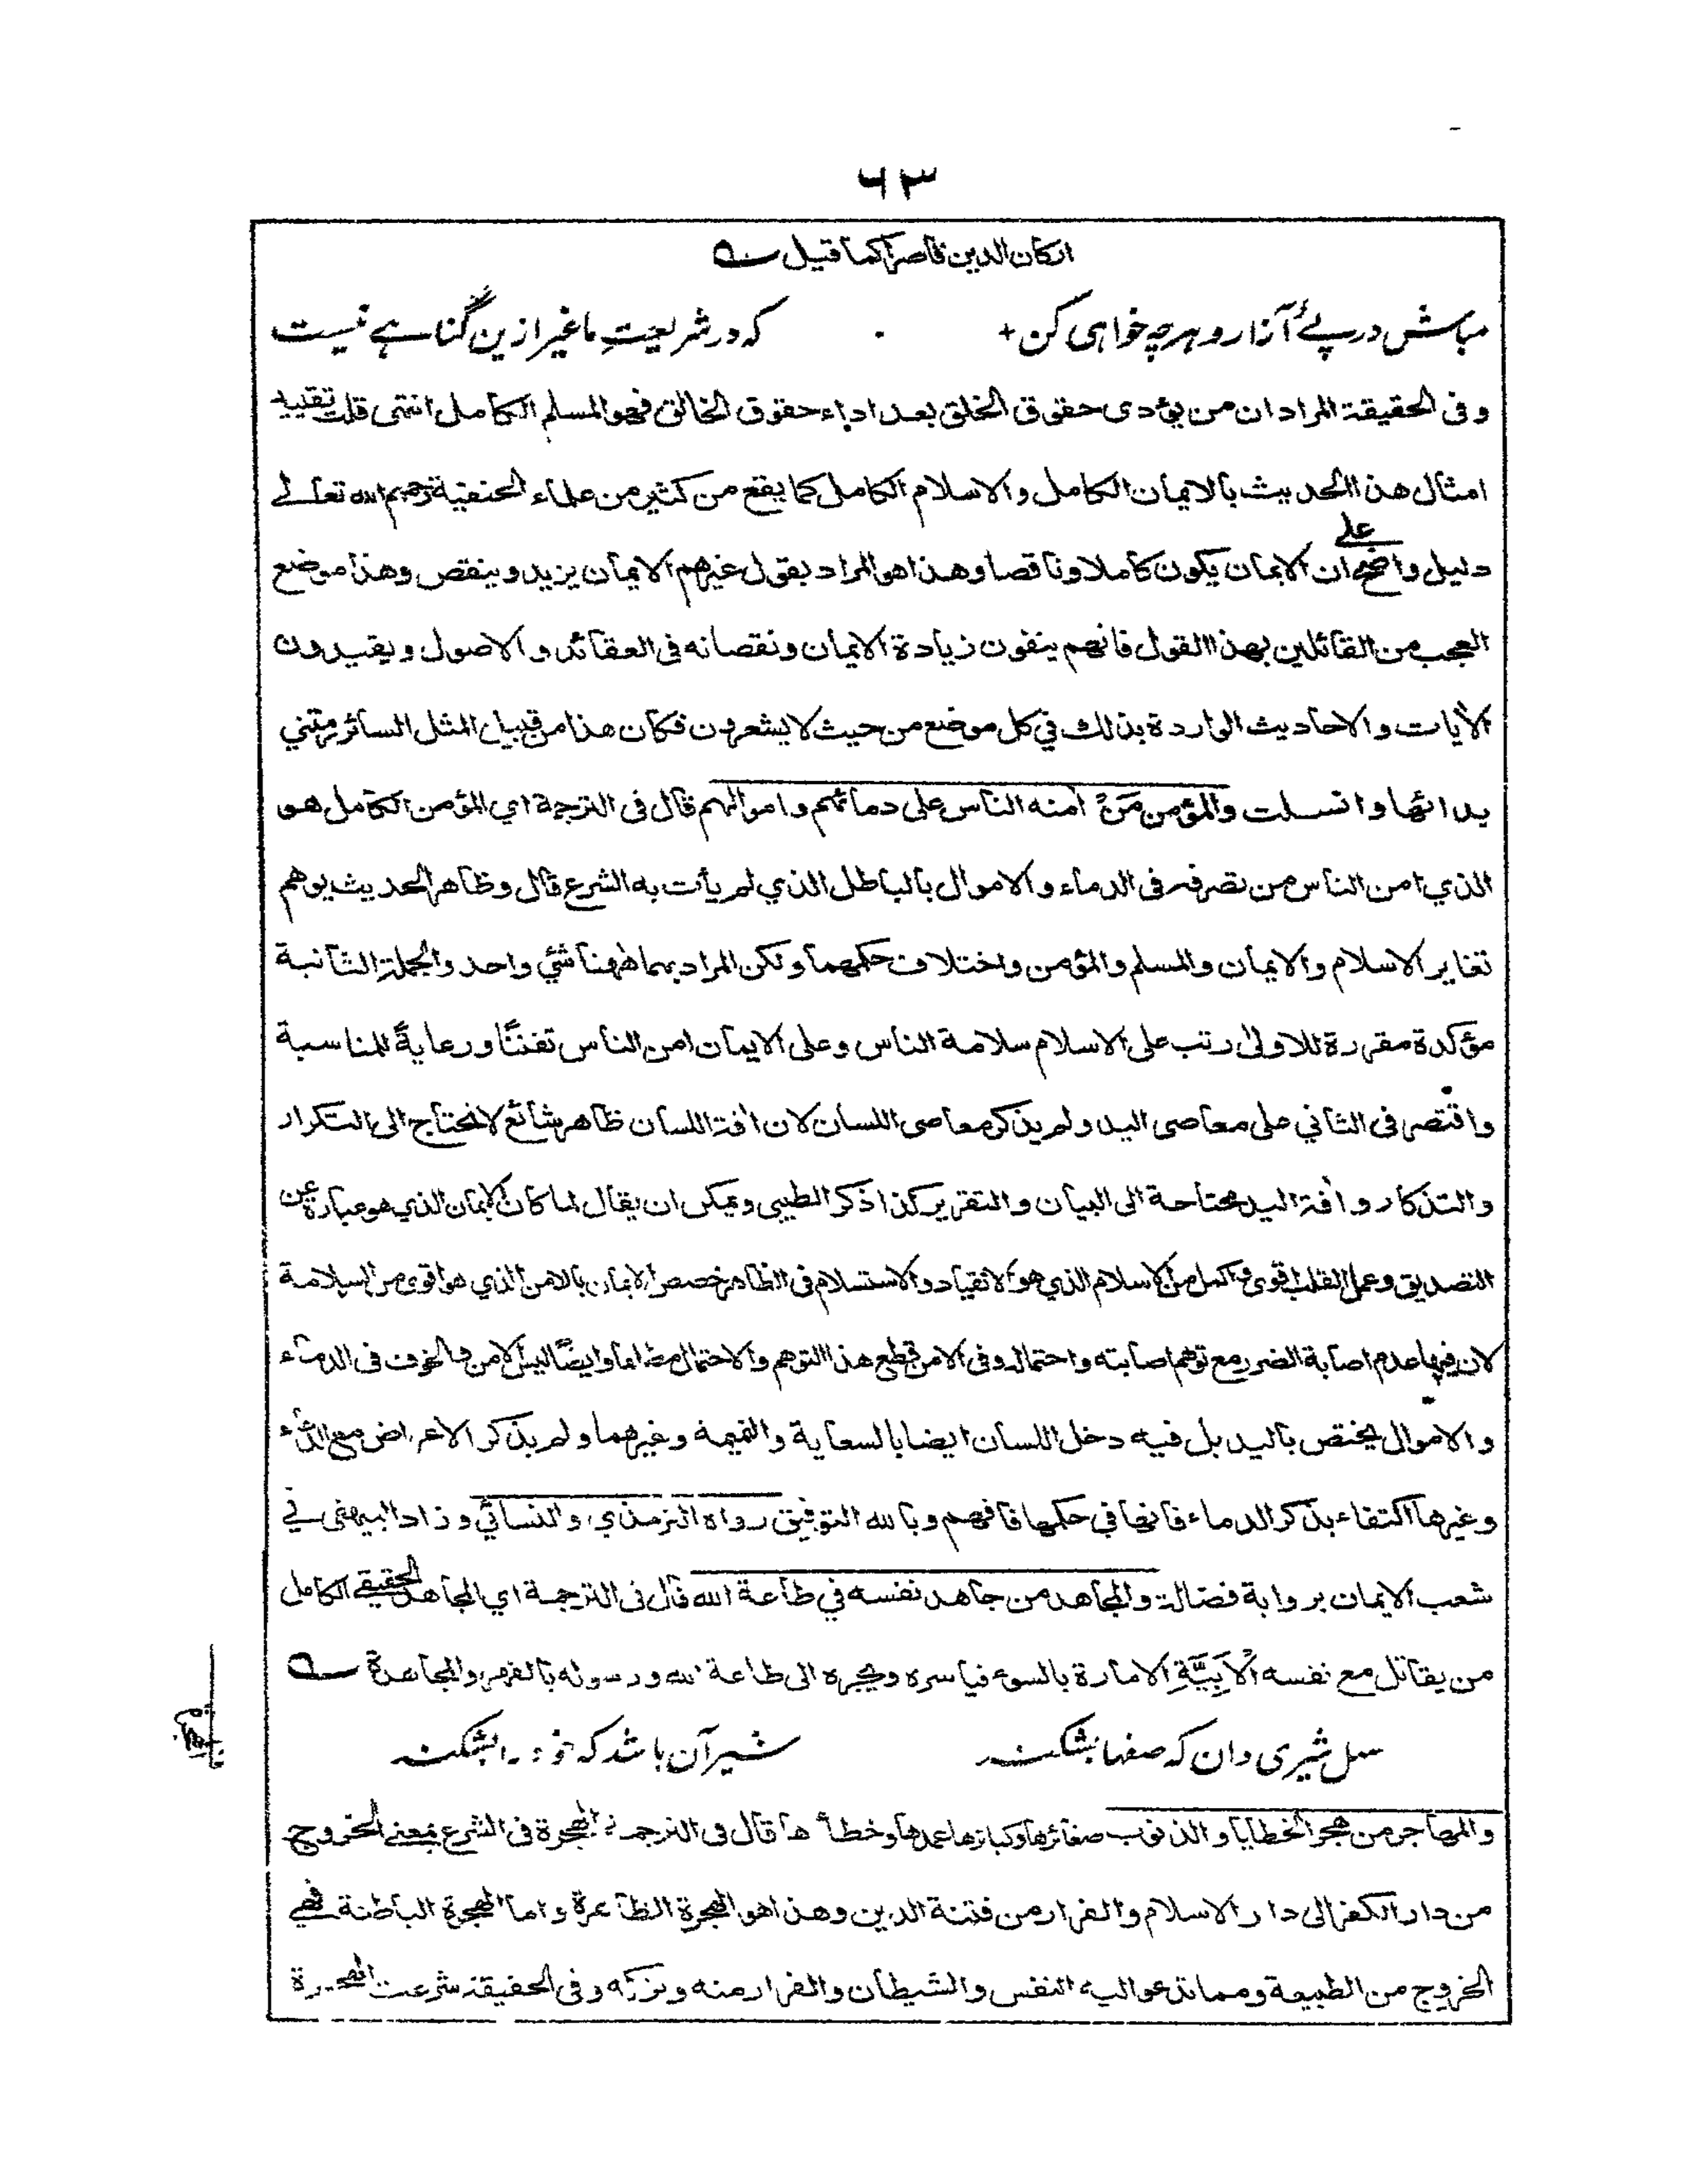 ٦٣
اركان الدين قاصرا كما قيل
مباش در پئے آزار و ہر چہ خواہی کن + که در شریعتِ ما غیر ازین گناہے نیست
وفى الحقيقة المراد ان من يؤدى حقوق الخلق بعد اداء حقوق الخالق فهو المسلم الكامل انتهى قلت تقييد
امثال هذا الحديث بالايمان الكامل والاسلام الكامل كما يقع من كثير من علماء الحنفية رحمهم الله تعالے
دليل واضح علے ان الايمان يكون كاملا وناقصا وهذا هو المراد بقول غيرهم الايمان يزيد وينقص وهذا موضع
العجب من القائلين بهذا القول فانهم ينفون زيادة الايمان ونقصانه فى العقائد والاصول ويقيدون
الآيات والاحاديث الواردة بذلك في كل موضع من حيث لا يشعرون فكان هذا من قبيل المثل السائر رمتني
بدائها وانسلت والمؤمن مَنْ امنه الناس على دمائهم واموالهم قال فى الترجمة اي المؤمن الكامل هو
الذي امن الناس من تصرفه فى الدماء والاموال بالباطل الذي لم يأت به الشرع قال وظاهر الحديث يوهم
تغاير الاسلام والايمان والمسلم والمؤمن واختلاف حكمهما ولكن المراد بهما ههنا شئي واحد والجملة الثانية
مؤكدة مقررة للاولىٰ رتب على الاسلام سلامة الناس وعلى الايمان امن الناس تفننًا ورعايةً للمناسبة
واقتصر فى الثاني على معاصى اليد ولم يذكر معاصى اللسان لان اٰفة اللسان ظاهر شائع لا يحتاج الى التكرار
والتذكار واٰفة اليد محتاجة الى البيان والتقرير كذا ذكر الطيبى ويمكن ان يقال لما كان الايمان الذي هو عبارة عن
التصديق وعمل القلب اقوى واكمل من الاسلام الذي هو الانقياد والاستسلام فى الظاهر خصص الايمان بالامن الذي هو اقوى من السلامة
لان فيها عدم اصابة الضرر مع توهم اصابته واحتماله وفى الامن قطع هذا التوهم والاحتمال وايضًا ليس الامن والخوف فى الدماء
والاموال يختص باليد بل فيه دخل اللسان ايضا بالسعاية والنميمة وغيرهما ولم يذكر الاعراض مع الدماء
وغيرها اكتفاء بذكر الدماء فانها في حكمها فافهم وبالله التوفيق رواه الترمذي والنسائي وزاد البيهقى في
شعب الايمان برواية فضالة والمجاهد من جاهد نفسه في طاعة الله قال فى الترجمة اي المجاهد الحقيقے الكامل
من يقاتل مع نفسه الْاَبِيَّةِ الامارة بالسوء فياسره ويجبره الى طاعة الله ورسوله بالقهر والمجاهدة
سہل شیری دان که صفہا بشکند شیر آن باشد که خود را بشکند
والمهاجر من هجر الخطايا والذنوب صغائرها وكبائرها عمدها وخطأها قال فى الترجمة الهجرة فى الشرع بمعنے الخروج
من دار الكفر الى دار الاسلام والفرار من فتنة الدين وهذا هو الهجرة الظاهرة واما الهجرة الباطنة فهي
الخروج من الطبيعة ومما تدعو اليه النفس والشيطان والفرار منه وتركه وفى الحقيقة شرعت الهجرة